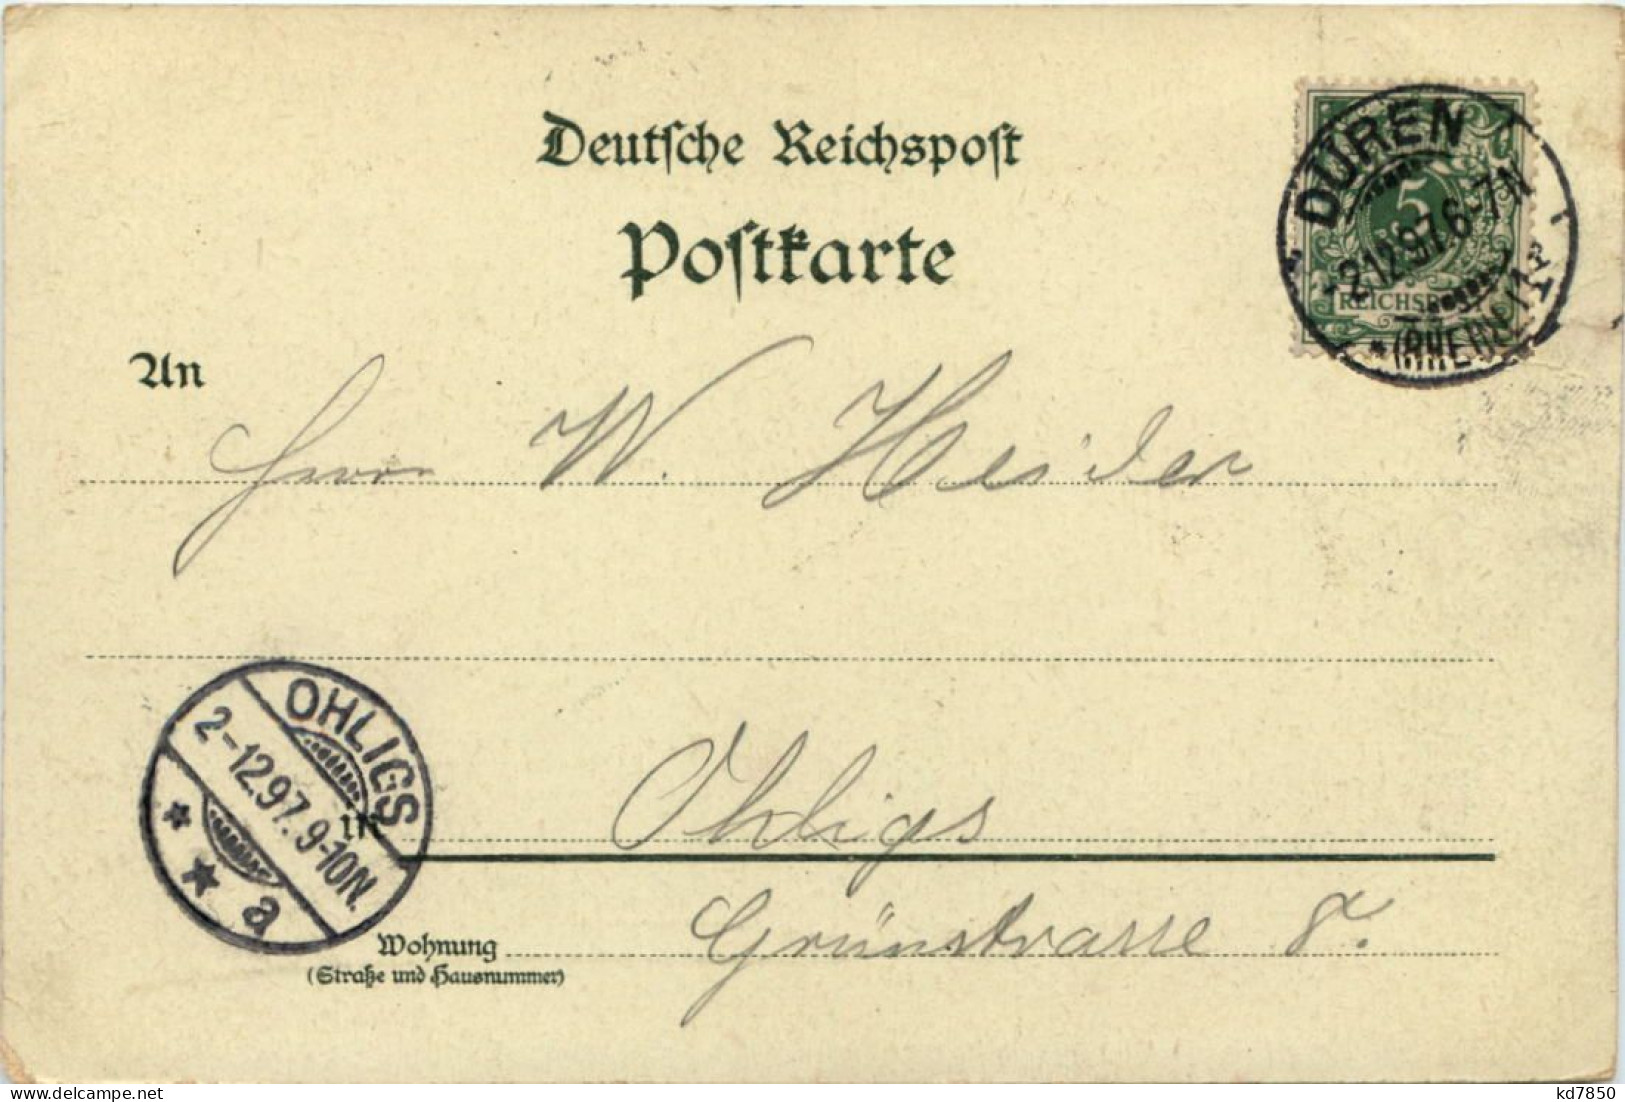 Deutsche Reichspost
Postkarte
DÜREN
-2.12.97.6-7N
*(RHEINL.)
5
REICHSPOST
An
Herrn W. Heider
OHLIGS
2-12.97.9-10N.
* * a
in Ohligs
Wohnung Grünstrasse 8.
(Straße und Hausnummer)
delcampe.net
kd7850